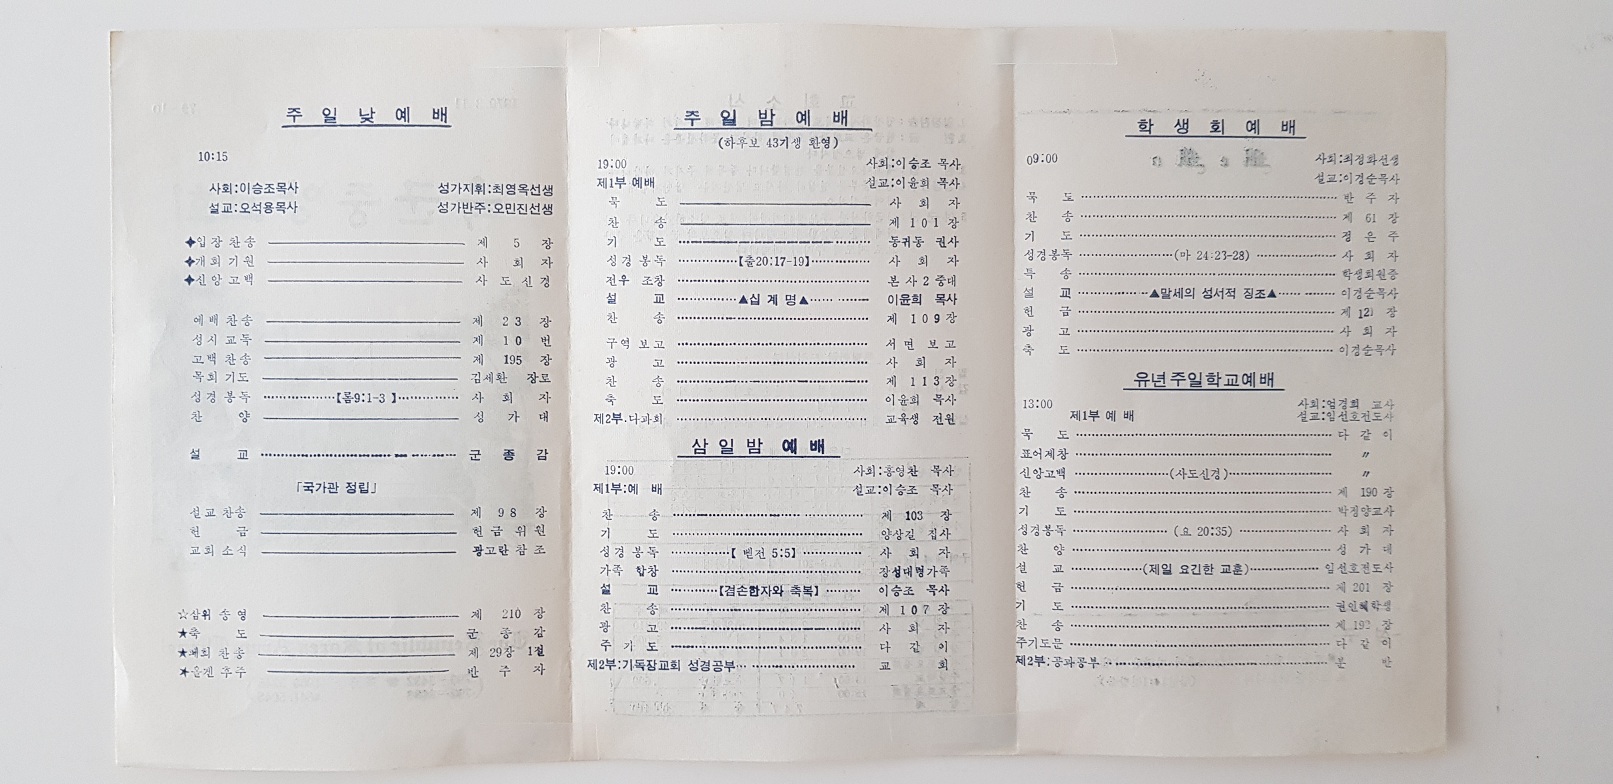 주 일 낮 예 배
10:15
사회:이승조목사 성가지휘:최영옥선생
설교:오석용목사 성가반주:오민진선생
✦입 장 찬 송 제 5 장
✦개 회 기 원 사 회 자
✦신 앙 고 백 사 도 신 경
예 배 찬 송 제 2 3 장
성 시 교 독 제 1 0 번
고 백 찬 송 제 195 장
목 회 기 도 김세환 장로
성 경 봉 독 【롬9:1-3 】 사 회 자
찬 양 성 가 대
설 교 군 종 감
「국가관 정립」
설 교 찬 송 제 9 8 장
헌 금 헌 금 위 원
교 회 소 식 광고란 참 조
☆삼 위 송 영 제 210 장
★축 도 군 종 감
★폐 회 찬 송 제 29장 1절
★은 후 주 반 주 자
주 일 밤 예 배
(하후보 43기생 환영)
19:00 사회:이승조 목사
제1부 예배 설교:이윤희 목사
묵 도 사 회 자
찬 송 제 1 0 1 장
기 도 동귀동 권사
성 경 봉 독 【출20:17-19】 사 회 자
전우 조창 본 사 2 중대
설 교 ▲십 계 명▲ 이윤희 목사
찬 송 제 1 0 9 장
구 역 보 고 서 면 보 고
광 고 사 회 자
찬 송 제 1 1 3 장
축 도 이윤희 목사
제2부.다과회 교육생 전원
삼 일 밤 예 배
19:00 사회:홍영찬 목사
제1부:예 배 설교:이승조 목사
찬 송 제 103 장
기 도 양상길 집사
성 경 봉 독 【 벧전 5:5】 사 회 자
가족 합창 장성대령가족
설 교 【겸손한자와 축복】 이승조 목사
찬 송 제 1 0 7 장
광 고 사 회 자
주 기 도 다 같 이
제2부:기독장교회 성경공부 교 회
학 생 회 예 배
09:00 사회:최정화선생
설교:이경순목사
묵 도 반 주 자
찬 송 제 61 장
기 도 정 은 주
성경봉독 (마 24:23-28) 사 회 자
특 송 학생회원중
설 교 ▲말세의 성서적 징조▲ 이경순목사
헌 금 제 121 장
광 고 사 회 자
축 도 이경순목사
유년주일학교예배
13:00 사회:엄경희 교사
제1부 예 배 설교:임선호전도사
묵 도 다 같 이
표어제창 〃
신앙고백 (사도신경) 〃
찬 송 제 190 장
기 도 박정양교사
성경봉독 (요 20:35) 사 회 자
찬 양 성 가 대
설 교 (제일 요긴한 교훈) 임선호전도사
헌 금 제 201 장
기 도 권인혜학생
찬 송 제 192 장
주기도문 다 같 이
제2부:공과공부 분 반